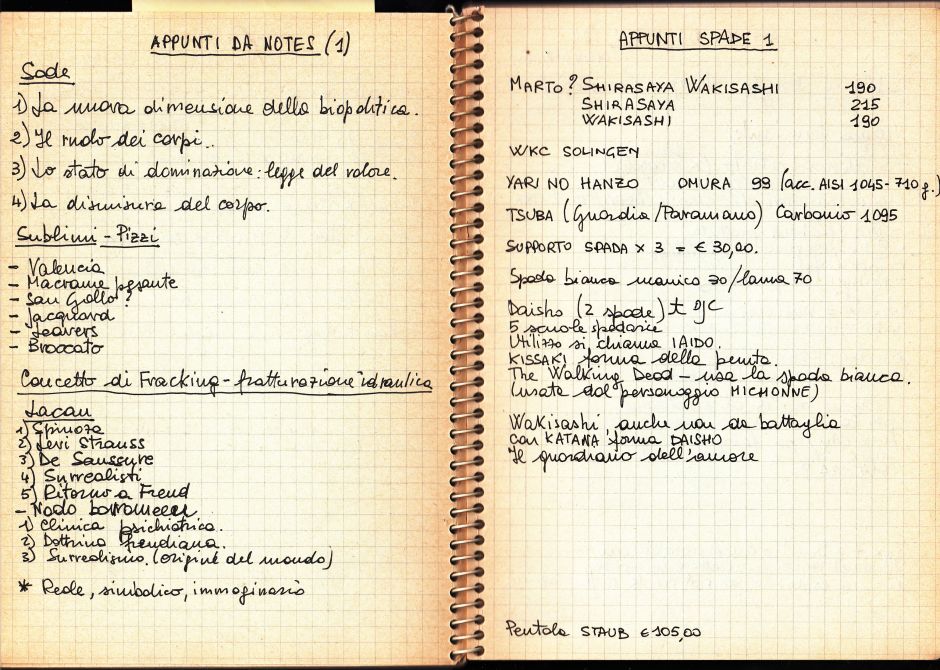 APPUNTI DA NOTES (1)
Sade
1) La nuova dimensione della biopolitica.
2) Il nudo dei corpi.
3) Lo stato di dominazione: legge del valore.
4) La dismisura del corpo.
Sublimi - Pizzi
- Valencia
- Macramè pesante
- San Gallo?
- Jacquard
- Leavers
- Broccato
Concetto di Fracking - fratturazione idraulica
Lacan
1) Spinoza
2) Levi Strauss
3) De Saussure
4) Surrealisti
5) Ritorno a Freud
- Nodo borromeer
1) Clinica psichiatrica.
2) Dottrina freudiana.
3) Surrealismo. (origine del mondo)
* Reale, simbolico, immaginario
APPUNTI SPADE 1
MARTO? SHIRASAYA WAKISASHI 190
SHIRASAYA 215
WAKISASHI 190
WKC SOLINGEN
YARI NO HANZO OMURA 99 (acc. AISI 1045 - 710 g.)
TSUBA (Guardia/Paramano) Carbonio 1095
SUPPORTO SPADA x 3 = € 30,00.
Spada bianca manico 30/lama 70
Daisho (2 spade)
5 scuole spadarie
Utilizzo si chiama IAIDO.
KISSAKI forma della punta.
The Walking Dead - usa la spada bianca.
(usata dal personaggio MICHONNE)
Wakisashi, anche non da battaglia
con KATANA forma DAISHO
Il guardiano dell'amore
Pentola STAUB € 105,00